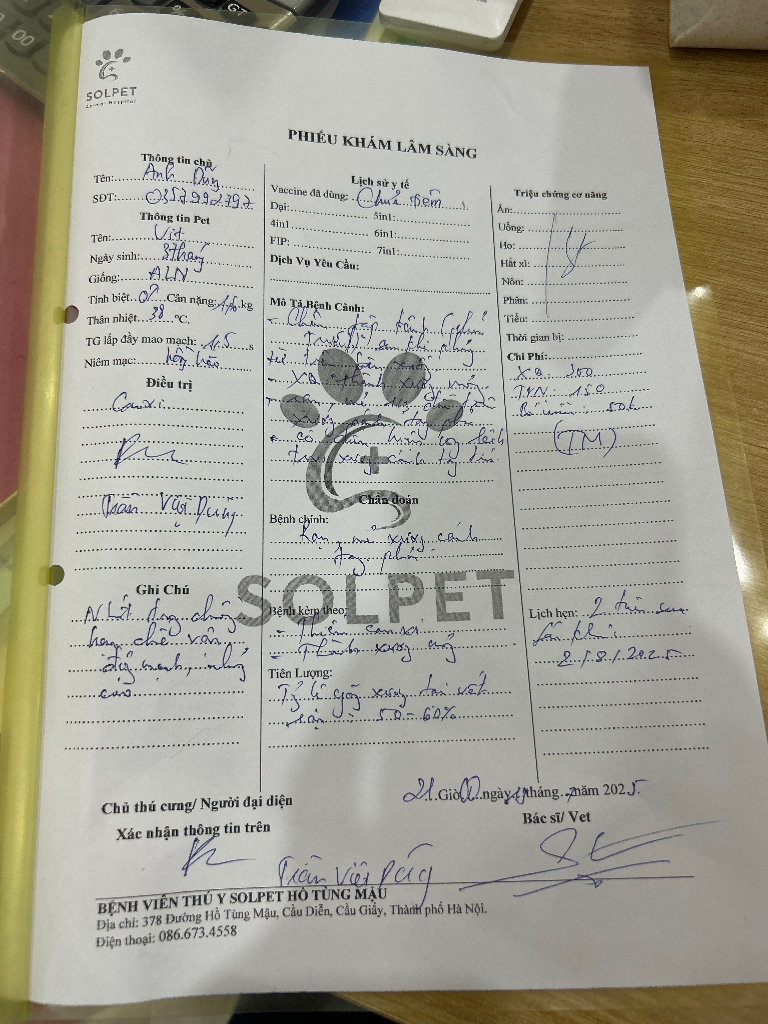 SOLPET
Animal Hospital
PHIẾU KHÁM LÂM SÀNG
Thông tin chủ
Tên: Anh Dũng
SĐT: 0357992797
Thông tin Pet
Tên: Vịt
Ngày sinh: 8 tháng
Giống: ALN
Tính biệt ♂ Cân nặng: kg
Thân nhiệt 38 °C.
TG lấp đầy mao mạch: 1.5 s
Niêm mạc: hồng hào
Điều trị
Canxi
Trần Việt Dũng
Ghi Chú
N
hạn chế vận
động mạnh, nhảy
cao
Lịch sử y tế
Vaccine đã dùng: Chưa tiêm
Dại: 5in1:
4in1 6in1:
FIP: 7in1:
Dịch Vụ Yêu Cầu:
Mô Tả Bệnh Cảnh:
- Chân tập tễnh
trước) sau khi nhảy
từ trên xuống
- XQ: thành xương mỏng
xương cánh tay phải
- có
xương cánh tay
Chẩn đoán
Bệnh chính:
Rạn mẻ xương cánh
tay phải
SOLPET
Bệnh kèm theo:
- Thiếu canxi
- Thành xương mỏng
Tiên Lượng:
Tỷ lệ gãy xương tại vết
rạn: 50-60%
Triệu chứng cơ năng
Ăn:
Uống:
Ho:
Hắt xì:
Nôn:
Phân:
Tiểu:
Thời gian bị:
Chi Phí:
XQ: 200
150
50k
(TM)
Lịch hẹn: 2 tuần sau
tái khám
8/8/2025
21 Giờ 00 ngày tháng 7 năm 2025.
Chủ thú cưng/ Người đại diện
Xác nhận thông tin trên
Bác sĩ/ Vet
Trần Việt Dũng
BỆNH VIỆN THÚ Y SOLPET HỒ TÙNG MẬU
Địa chỉ: 378 Đường Hồ Tùng Mậu, Cầu Diễn, Cầu Giấy, Thành phố Hà Nội.
Điện thoại: 086.673.4558